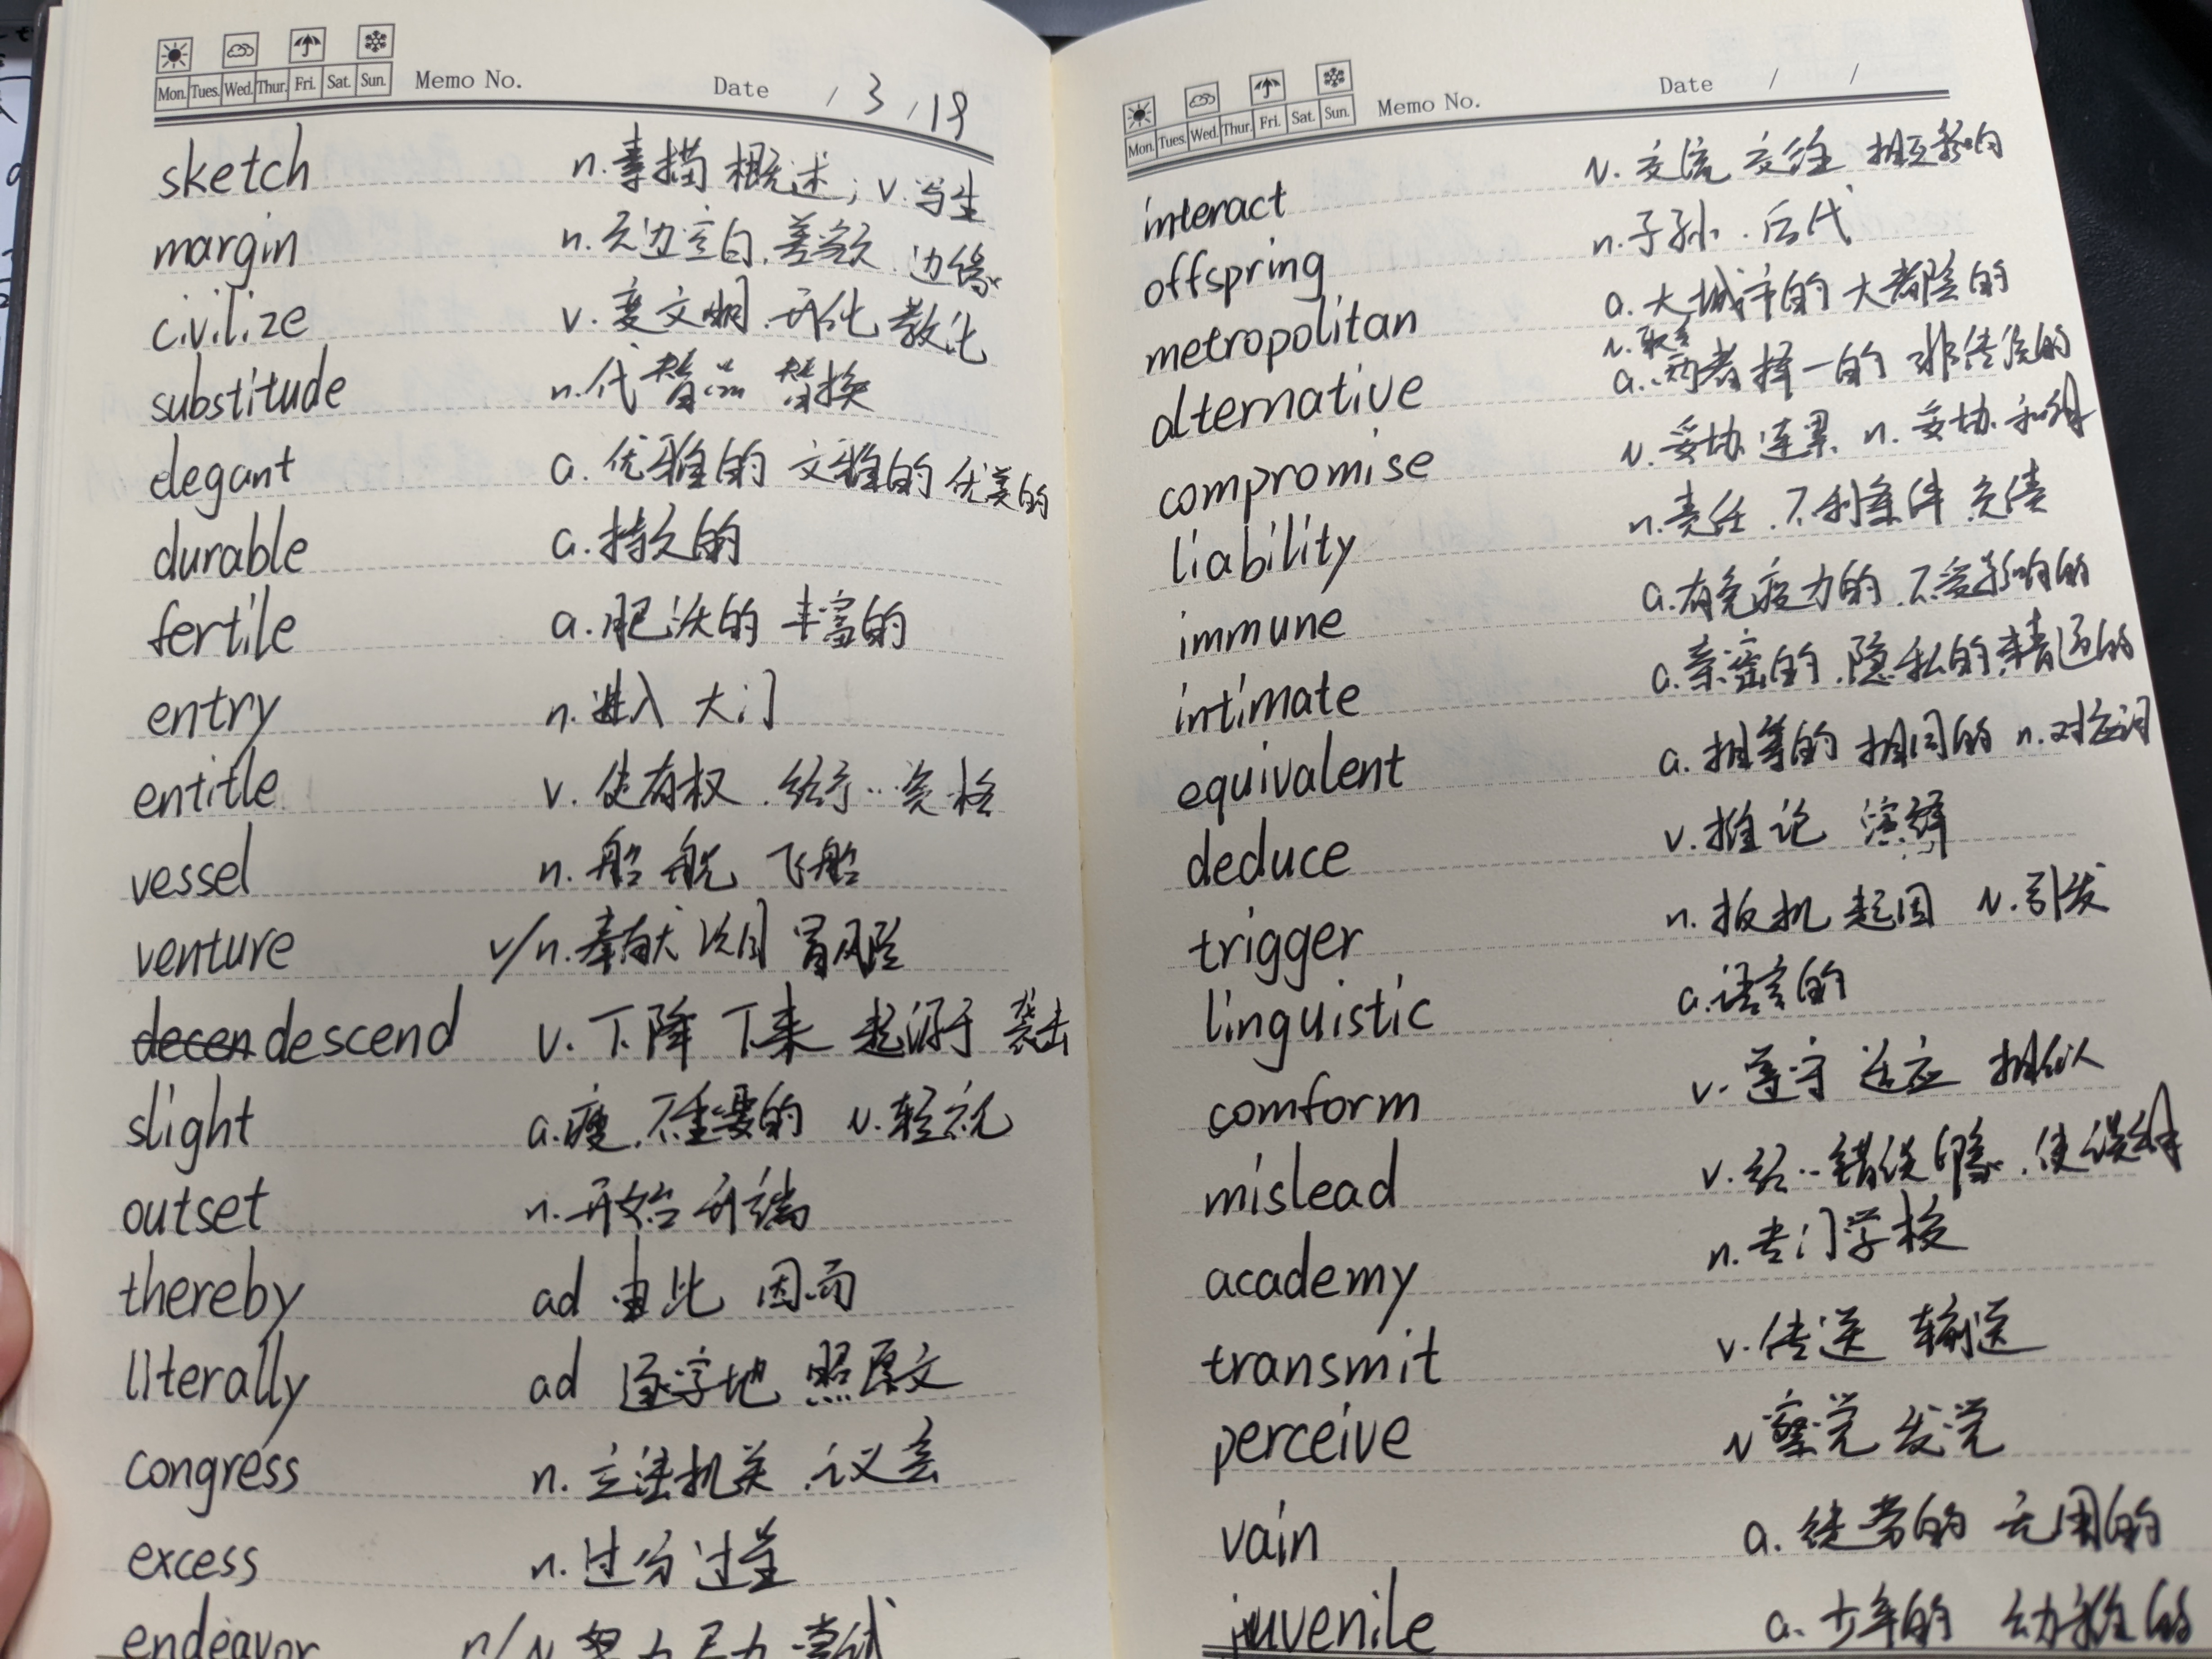 Mon. Tues. Wed. Thur. Fri. Sat. Sun. Memo No. Date / 3 / 19
sketch n. 素描 概述; v. 写生
margin n. 页边空白. 差额. 边缘
civilize v. 变文明. 开化 教化
substitude n. 代替品 替换
elegant a. 优雅的 文雅的 优美的
durable a. 持久的
fertile a. 肥沃的 丰富的
entry n. 进入 大门
entitle v. 使有权. 给予…资格
vessel n. 船 舰 飞船
venture v/n. 奉献 冒风险
decen descend v. 下降 下来 起源于 袭击
slight a. 瘦. 不重要的 v. 轻视
outset n. 开始 开端
thereby ad 由此 因而
literally ad 逐字地 照原文
congress n. 立法机关. 议会
excess n. 过分 过量
endeavor n/v 努力 尽力 尝试
Mon. Tues. Wed. Thur. Fri. Sat. Sun. Memo No. Date / /
interact v. 交流 交往 相互影响
offspring n. 子孙. 后代
metropolitan a. 大城市的 大都会的
alternative a. 两者择一的 非传统的
compromise v. 妥协 连累 n. 妥协. 和解
liability n. 责任. 不利条件 负债
immune a. 有免疫力的. 不受影响的
intimate a. 亲密的. 隐私的. 精通的
equivalent a. 相等的 相同的 n. 对应词
deduce v. 推论 演绎
trigger n. 扳机 起因 v. 引发
linguistic a. 语言的
comform v. 遵守 适应 相似
mislead v. 给…错误印象. 使误解
academy n. 专门学校
transmit v. 传送 输送
perceive v 察觉 发觉
vain a. 徒劳的 无用的
juvenile a. 少年的 幼稚的